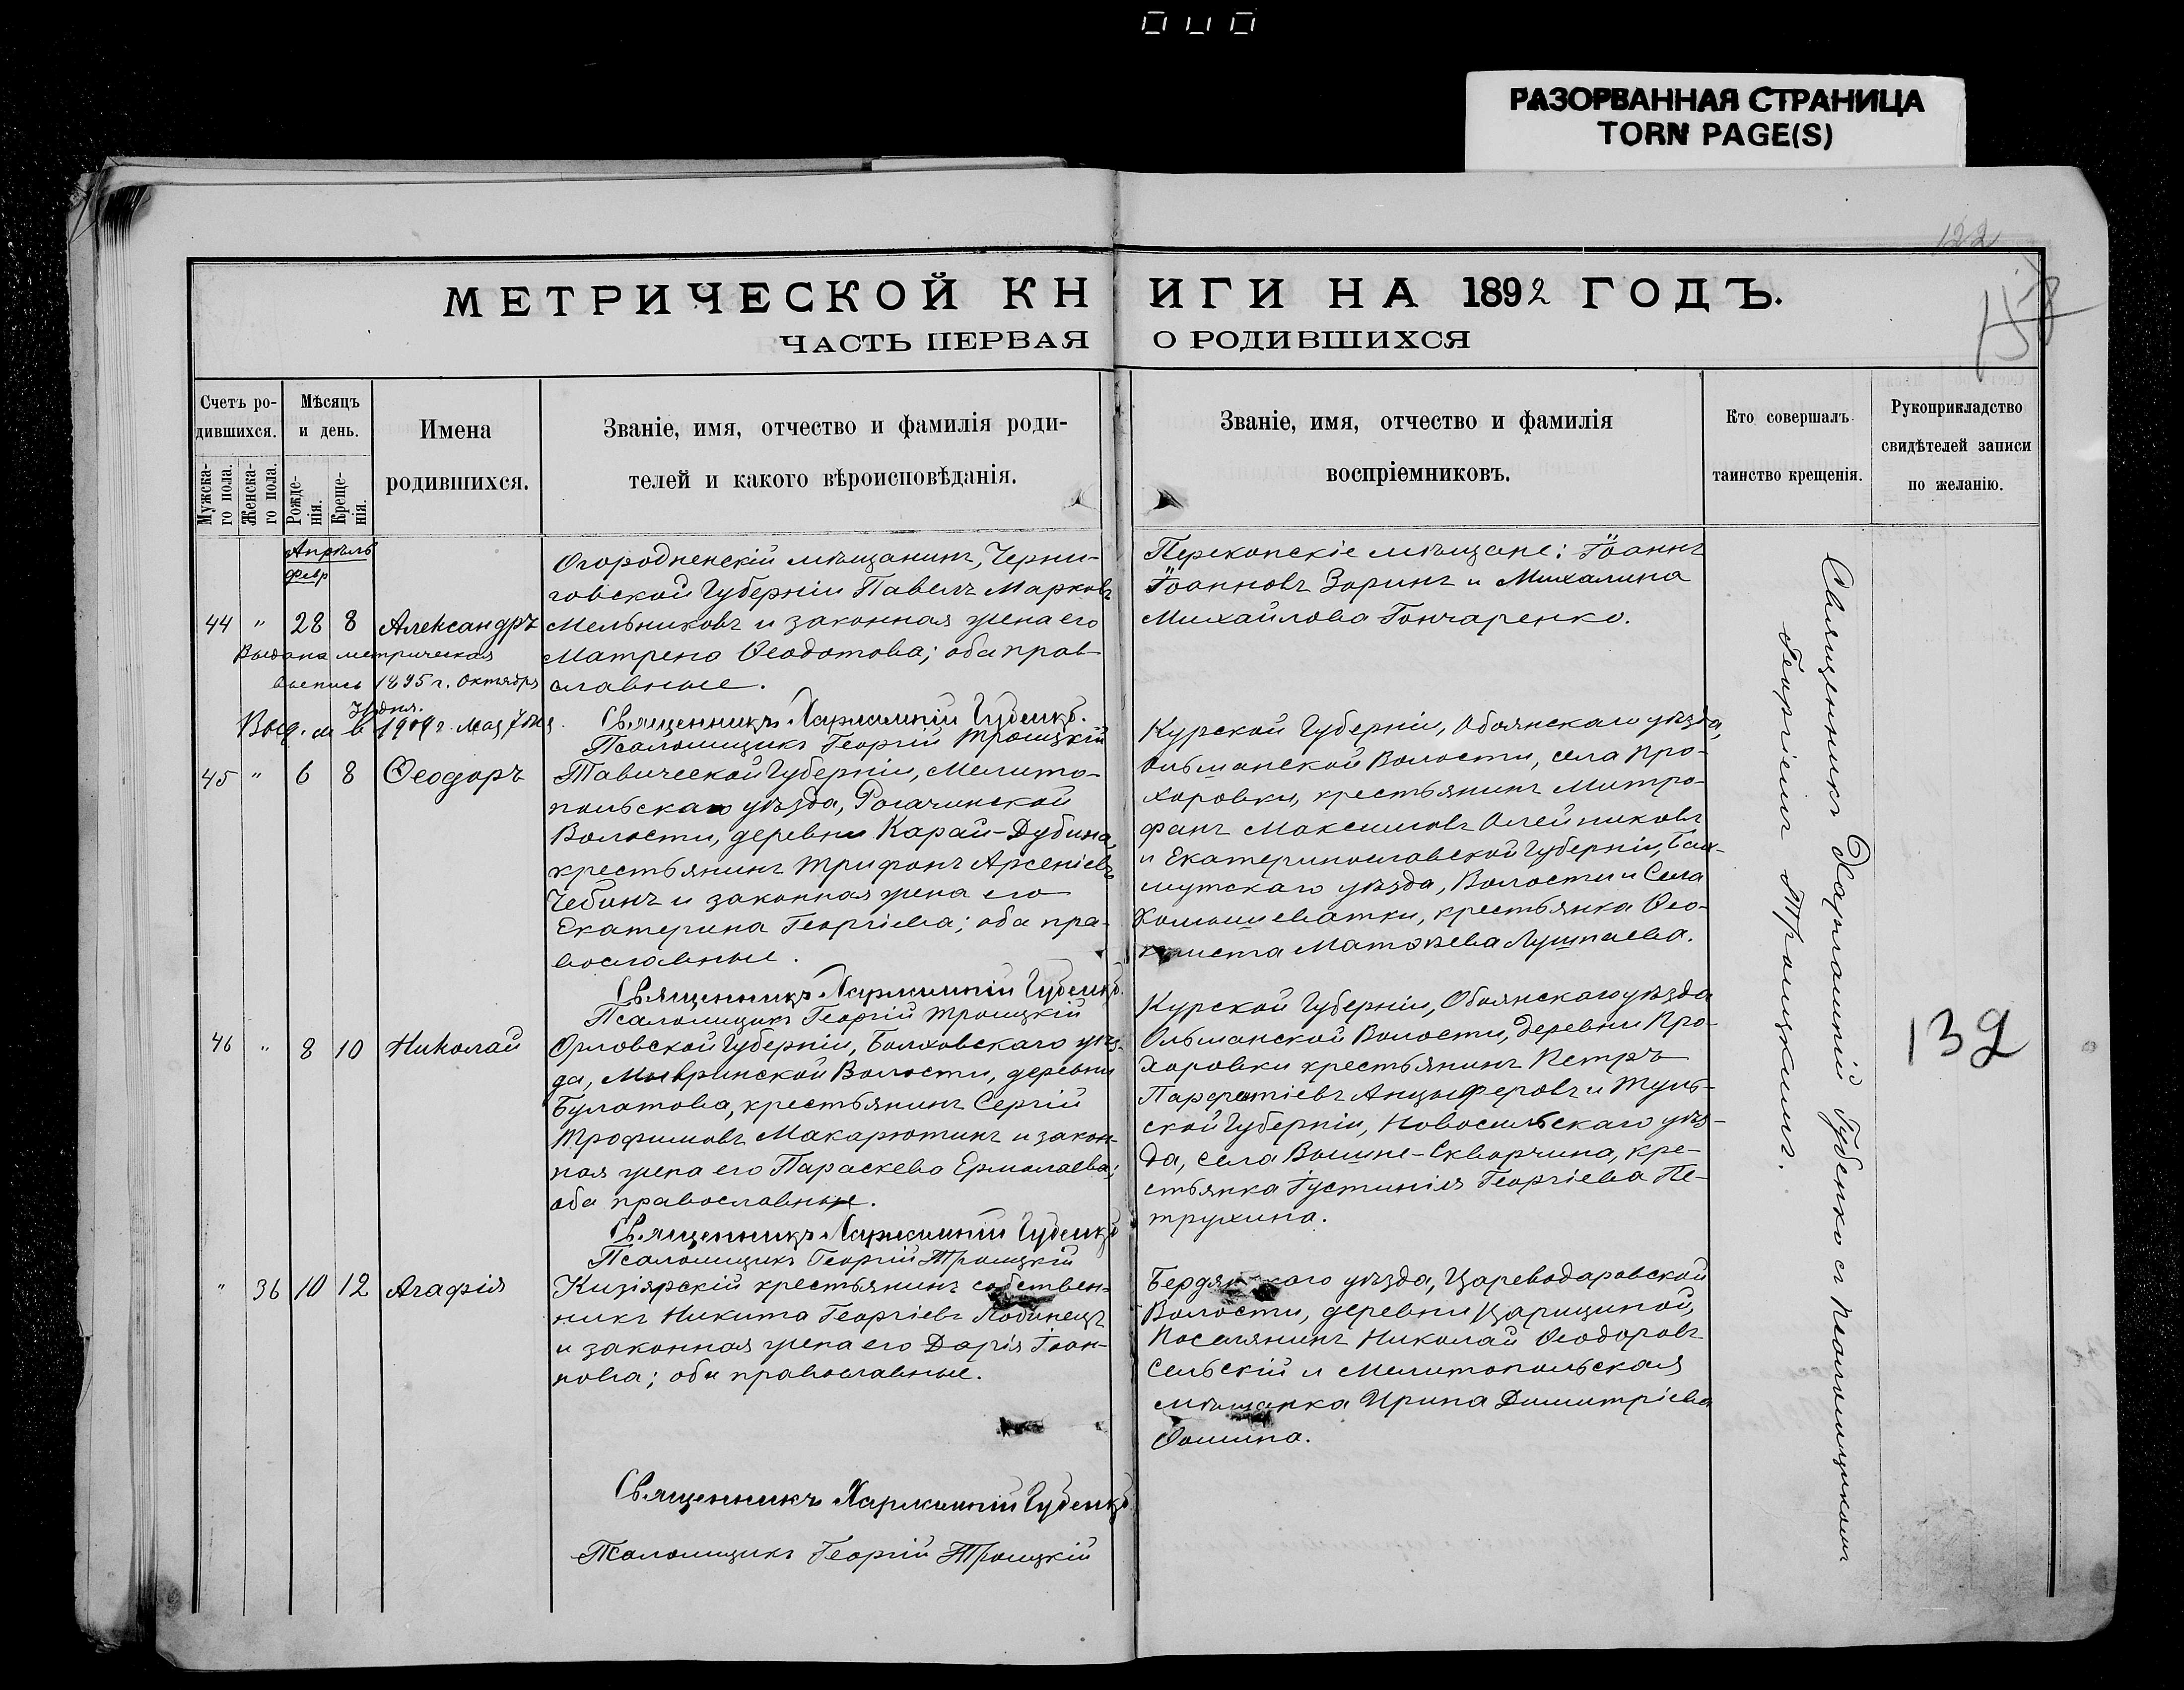 РАЗОРВАННАЯ СТРАНИЦА
TORN PAGE(S)
122
МЕТРИЧЕСКОЙ КНИГИ НА 1892 ГОДЪ.
ЧАСТЬ ПЕРВАЯ О РОДИВШИХСЯ
Счетъ ро-
дившихся.
Мужска-
го пола.
Женска-
го пола.
Мѣсяцъ
и день.
Рожде-
нія.
Креще-
нія.
Имена
родившихся.
Званіе, имя, отчество и фамилія роди-
телей и какого вѣроисповѣданія.
Званіе, имя, отчество и фамилія
воспріемниковъ.
Кто совершалъ
таинство крещенія.
Рукоприкладство
свидѣтелей записи
по желанію.
Апрѣль
Февр
44 " 28 8 Александръ
Выдана метрическая
выпись 1895 г. Октября
31 дня.
Выд. м в 1909 г. Мая 7 дня
Огородненскій мѣщанинъ, Черни-
говской Губерніи Павелъ Марковъ
Мельниковъ и законная жена его
Матрена Ѳеодотова; оба прав-
славные.
Священникъ Харлампій Губенко.
Псаломщикъ Георгій Троицкій
Перекопскіе мѣщане: Іоаннъ
Іоанновъ Зоринъ и Михалина
Михайлова Гончаренко.
45 " 6 8 Ѳеодоръ
Тавической Губерніи, Мелито-
польскаго уѣзда, Рогачинской
Волости, деревни Карай-Дубина,
крестьянинъ Трифонъ Арсеніевъ
Чебанъ и законная жена его
Екатерина Георгіева; оба пра-
вославные.
Священникъ Харлампій Губенко.
Псаломщикъ Георгій Троицкій
Курской Губерніи, Обоянскаго уѣзда,
Ольшанской Волости, села Про-
хоровки, крестьянинъ Митро-
фанъ Максимовъ Олейниковъ
и Екатеринославской Губерніи, Бах-
мутскаго уѣзда, Волости и Села
крестьянка Ѳео-
Матѳѣева Лушпаева.
46 " 8 10 Николай
Орловской Губерніи, Болховскаго уѣз-
да, Мывринской Волости, деревни
Булатова, крестьянинъ Сергій
Трофимовъ Макарютинъ и закон-
ная жена его Параскева Ермолаева;
оба православные.
Священникъ Харлампій Губенко
Псаломщикъ Георгій Троицкій
Курской Губерніи, Обоянскаго уѣзда
Ольшанской Волости, деревни Про-
хоровки крестьянинъ Петръ
Анцыферовъ и Туль-
ской Губерніи, Новосильскаго уѣз-
да, села Скворчина, кре-
стьянка Іустинія Георгіева Пе-
трухина.
" 36 10 12 Агафія
Кизіярскій крестьянинъ собствен-
никъ Никита Георгіевъ Лобинецъ
и законная жена его Дарія Іоан-
нова; оба православные.
Священникъ Харлампій Губенко
Псаломщикъ Георгій Троицкій
Бердянскаго уѣзда, Цареводаровской
Волости, деревни Царициной,
Поселянинъ Николай Ѳеодоровъ
Сельскій и Мелитопольская
мѣщанка Ирина Димитріева
Ѳомина.
Священникъ Харлампій Губенко съ Псаломщикомъ
Георгіемъ Троицкимъ.
132